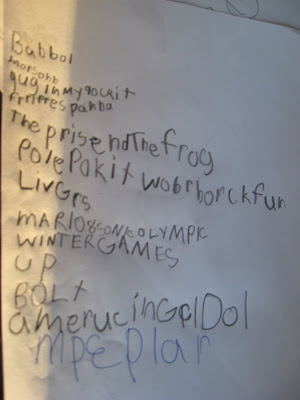 Babbol
morsohb
guginmypockit
frrfrespanba
The prisendThefrog
PolePokit wobrhorckfun
LivGrs
MARIO&SONicOLYMPIC
WINTERGAMES
UP
BOLt
amerucingidol
mpeplar